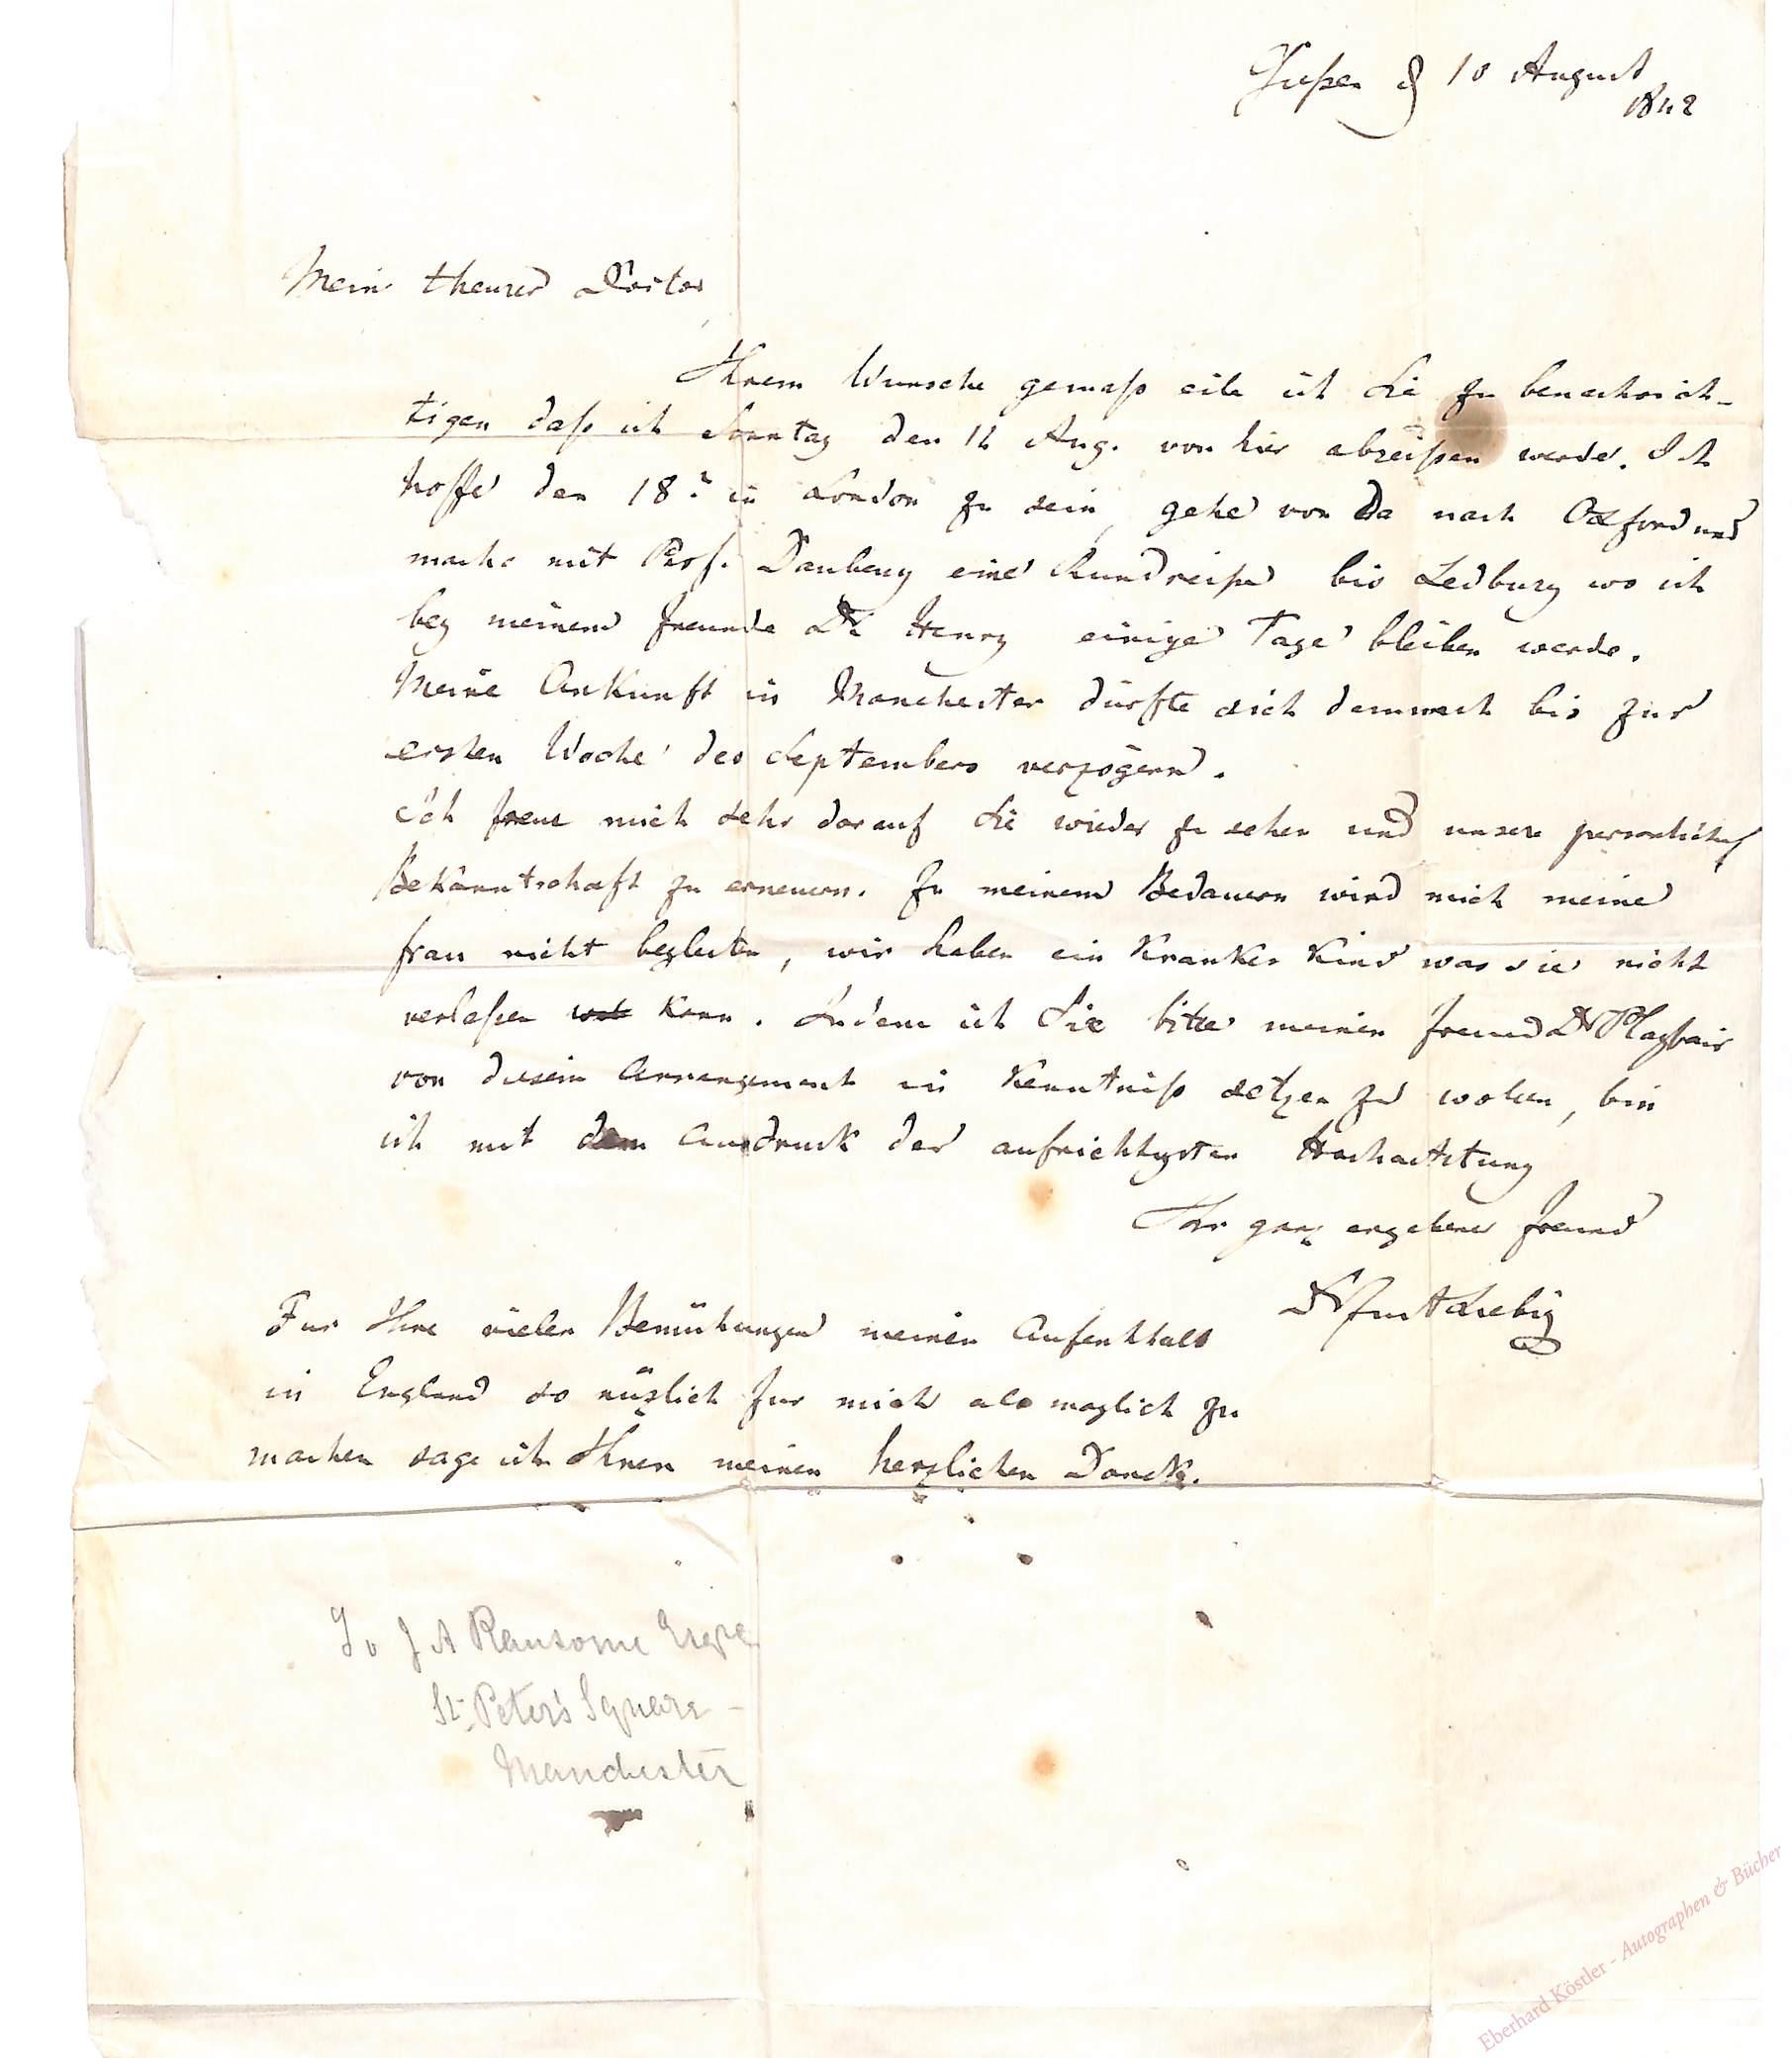 Gießen d 10 August
1842
Mein theurer Doctor
Ihrem Wunsche gemäß eile ich Sie zu benachrich-
tigen daß ich Sonntag den 14 Aug. von hier abreißen werde. Ich
hoffe den 18. in London zu sein, gehe von da nach Oxford und
mache mit Prof. Daubeny eine Rundreiße bis Ledbury wo ich
bey meinem Freunde Dr Henry einige Tage bleiben werde.
Meine Ankunft in Manchester dürfte sich demnach bis zur
ersten Woche des Septembers verzögern.
Ich freue mich sehr darauf Sie wieder zu sehen und unsere persönliche
Bekanntschaft zu erneuern. Zu meinem Bedauern wird mich meine
Frau nicht begleiten, wir haben ein krankes Kind was sie nicht
verlaßen kann. Indem ich Sie bitte meinen Freund Dr Playfair
von diesem Arrangement in Kenntniß setzen zu wollen, bin
ich mit dem Ausdruck der aufrichtigsten Hochachtung
Ihr ganz ergebener Freund
Dr Just Liebig
Fur Ihre vielen Bemühungen meinen Aufenthalt
in England so nüzlich fur mich als moglich zu
machen sage ich Ihnen meinen herzlichen Danck.
To J A Ransome Esqre
St. Peter's Square -
Manchester
Eberhard Köstler - Autographen & Bücher